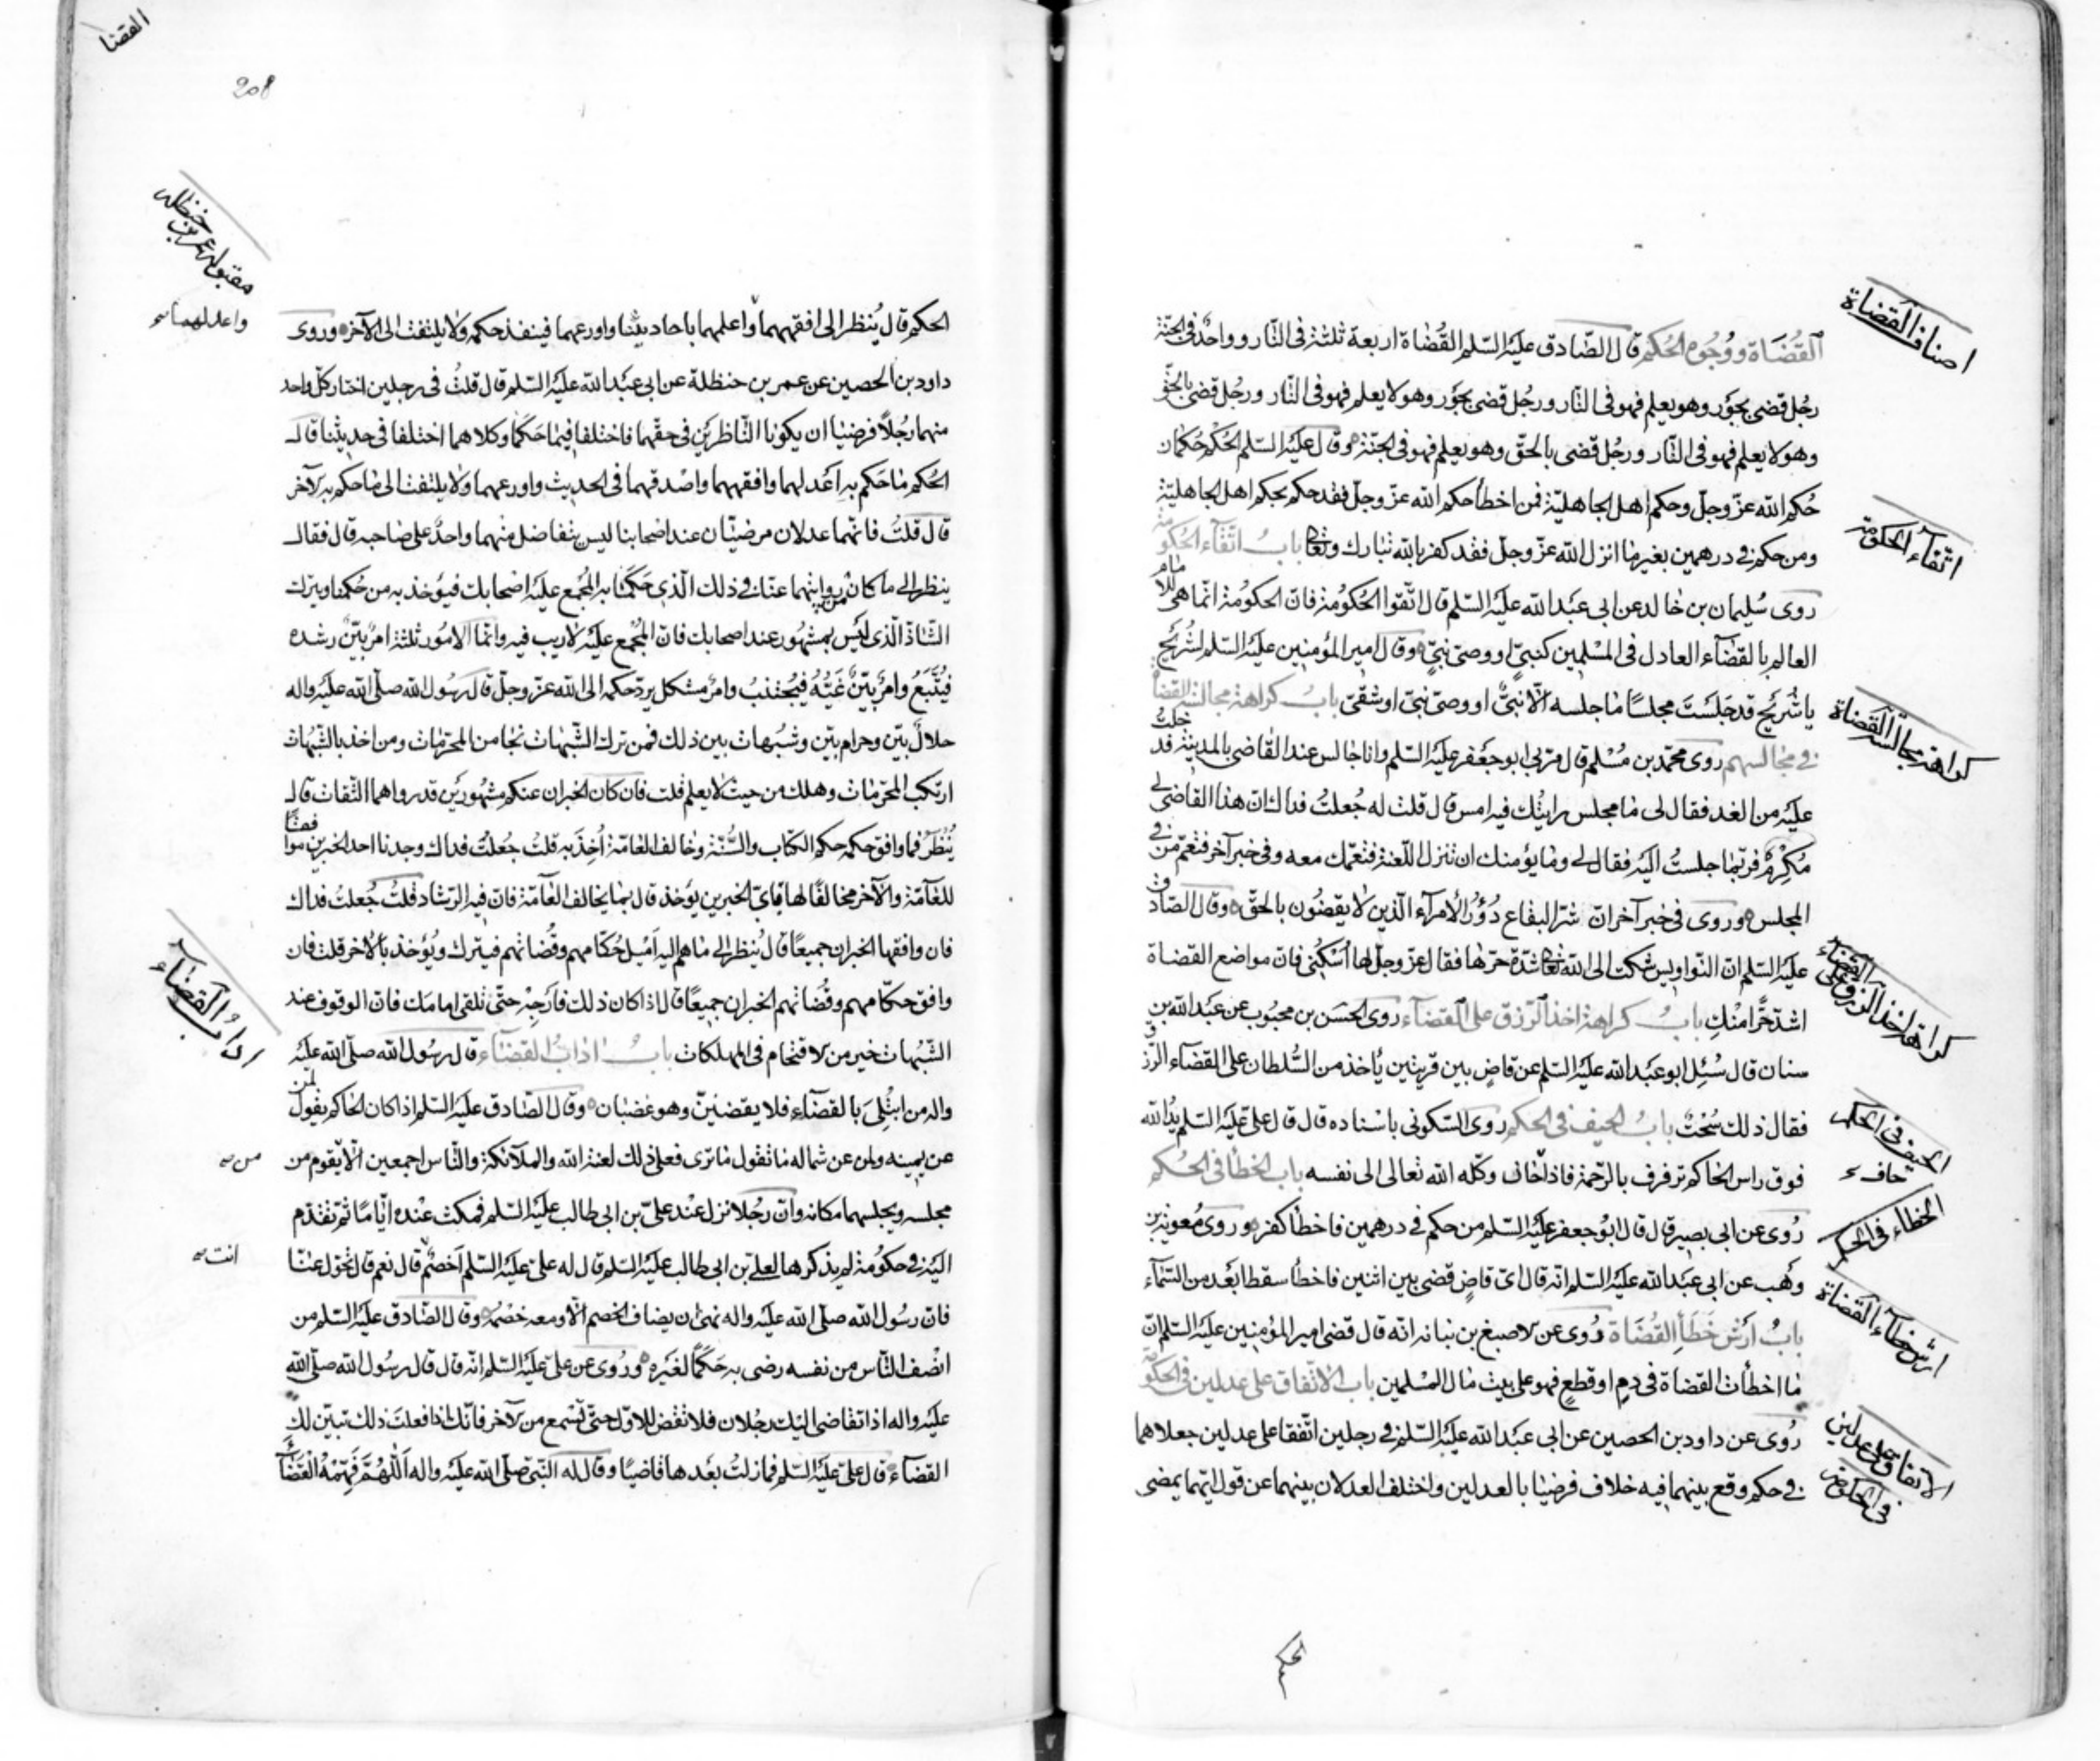 اصناف القضاة
القُضَاة ووُجُوه الحُكم قال الصّادق عليه السّلم القُضاة اربعة ثلثة فى النّار وواحدٌ فى الجنّة
رجُل قضى بجَوْر وهو يعلم فهو فى النّار ورجُل قضى بجَوْر وهو لا يعلم فهو فى النّار ورجُل قضى بالحقّ
وهو لا يعلم فهو فى النّار ورجُل قضى بالحقّ وهو يعلم فهو فى الجنّة وقال عليه السّلم الحُكم حُكمان
حُكم الله عزّ وجلّ وحكم اهل الجاهليّة فمن اخطأ حكم الله عزّ وجلّ فقد حكم بحكم اهل الجاهليّة
اتّقآء الحكومة
ومن حكم فى درهمين بغير ما انزل الله عزّ وجلّ فقد كفر بالله تبارك وتعالى بابُ اتّقآء الحُكومة
روى سُليمان بن خالد عن ابى عبد الله عليه السّلم قال اتّقوا الحُكومة فانّ الحكومة انّما هى للامام
العالم بالقضآء العادل فى المسْلمين كنبىّ او وصىّ نبىّ وقال امير المؤمنين عليه السّلم لشُريح
كراهة مجالسة القضاة
يا شُريح قد جَلَسْتَ مجلسًا ما جلسه الّا نبىٌّ او وصىّ نبىّ او شقىّ بابُ كراهة مجالسة القضاة
فى مجالسهم روى محمّد بن مُسْلم قال مرّ بى ابو جعفر عليه السّلم وانا جالس عند القاضى بالمدينة فدخلتُ
عليه من الغد فقال لى ما مجلس رايتُك فيه امس قال قلت له جُعلتُ فداك انّ هذا القاضى لى
مُكرِمٌ فربّما جلستُ اليه فقال لى وما يؤمنك ان تنزل اللّعنة فتعمّك معه وفى خبر آخر فتعمّ من فى
المجلس وروى فى خبر آخر انّ شرّ البقاع دُوْرُ الأمرآء الّذين لا يقضُون بالحقّ وقال الصّادق
عليه السّلم انّ النّواويس شكت الى الله تعالى شدّة حرّها فقال عزّ وجلّ لها اُسْكُنى فانّ مواضع القضاة
كراهة اخذ الرّزق على القضآء
اشدّ حرًّا منْكِ بابُ كراهة اخذ الرّزق على القضآء روى الحسَن بن محبُوب عن عبَد الله بن
سنان قال سُئِل ابو عبَد الله عليه السّلم عن قاضٍ بين قريتين يأخذ من السُّلطان على القضآء الرّزق
الحيف فى الحكم
فقال ذلك سُحْتٌ بابُ الحيف فى الحكم روى السّكونى باسْناده قال قال علىّ عليه السّلم يدُ الله
حاف
فوق راس الحاكم ترفرف بالرّحمة فاذا خاف وكّله الله تعالى الى نفسه باب الخطأ فى الحُكم
الخطاء فى الحكم
رُوى عن ابى بصير قال قال ابُو جعفر عليه السّلم من حكم فى درهمين فاخطأ كفر وروى مُعوية بن
وهْب عن ابى عبَد الله عليه السّلم انّه قال اىّ قاضٍ قضى بين اثنين فاخطأ سقط ابعَد من السّمآء
ارش خطآء القضاة
بابُ اَرْش خَطأ القُضَاة رُوى عن الاصبغ بن نباته انّه قال قضى امير المؤمنين عليه السّلم انّ
ما اخطأت القضاة فى دمٍ او قطعٍ فهو على بيت مال المسْلمين باب الاتّفاق على عدلين فى الحكومة
الاتفاق على عدلين
فى الحكومة
رُوى عن داود بن الحصين عن ابى عبَد الله عليه السّلم فى رجلين اتّفقا على عدلين جعلاهما
فى حكم وقع بينهما فيه خلاف فرضيا بالعدلين واختلف العدلان بينهما عن قول ايّهما يمضى
القضا
208
مقبوله عمر بن حنظله
واعدلهما
الحكم قال يُنظر الى افقههما واعلمهما باحاديثنا واورعهما فينفذ حكمه ولا يلتفت الى الآخر وروى
داود بن الحصين عن عمر بن حنظلة عن ابى عبَد الله عليه السّلم قال قلتُ فى رجلين اختار كلّ واحد
منهما رجُلاً فرضيا ان يكونا النّاظرَين فى حقّهما فاختلفا فيما حَكَمَا وكلاهما اختلفا فى حديثنا قال
الحُكم ما حَكم به اعْدلهما وافقههما واصْدقهما فى الحديث واورعهما ولا يلتفت الى ما حكم به الآخر
قال قلتُ فانّهما عدلان مرضيّان عند اصْحابنا ليس يتفاضل منهما واحدٌ على صاحبه قال فقال
ينظر الى ما كان من روايتهما عنّا فى ذلك الّذى حَكَمَا به المُجْمع عليه اصْحابك فيؤخذ به من حُكمنا ويترك
الشّاذّ الّذى ليَس بمشهُور عند اصحابك فانّ المُجْمع عليه لا ريب فيه وانّما الامُور ثلثة امْرٌ بيّنٌ رشده
فيُتّبَعُ وامرٌ بيّنٌ غَيُّهُ فيُجتنبُ وامرٌ مشكل يردّ حكمه الى الله عزّ وجلّ قال رسُول الله صلّى الله عليه واله
حلالٌ بيّن وحرام بيّن وشُبُهات بين ذلك فمن ترك الشّبهات نجا من المحرّمات ومن اخذ بالشّبُهات
ارتكب المحرّمات وهلك من حيث لا يعلم قلت فان كان الخبران عنكم مشهُورَين قد رواهما الثّقات قال
يُنْظَرُ فما وافق حكمه حكم الكتاب والسُّنّة وخالف العامّة اُخِذَ به قلتُ جُعلتُ فداك وجدنا احد الخبرين موافقًا
للعآمّة والآخر مخالفًا لها باىّ الخبرين يؤخذ قال بما يخالف العآمّة فانّ فيه الرّشاد قلتُ جُعلتُ فداك
فان وافقها الخبران جميعًا قال يُنظر الى ما هم اليه اَمْيل حُكّامهم وقُضاتهم فيترك ويُؤخذ بالآخر قلت فان
اداب القضآء
وافق حكّامهم وقُضاتهم الخبران جميعًا قال اذا كان ذلك فاَرْجِهْ حتّى تلقى امامَك فانّ الوقوف عند
الشّبُهات خير من الاقتحام فى المهلكات بابُ ادابُ القضآء قال رسُول الله صلّى الله عليه
واله من ابتُلِىَ بالقضآء فلا يقضينّ وهو غضبان وقال الصّادق عليه السّلم اذا كان الحاكم يقول لمن
من
عن يمينه ولمن عن شماله ما تقول ما ترى فعلى ذلك لعنة الله والملآئكة والنّاس اجمعين الّا يقوم من
مجلسه ويجلسهما مكانه وانّ رجُلا نزل عنْد علىّ بن ابى طالب عليه السّلم فمكث عنْده ايّامًا ثمّ تقدّم
انت
اليَه فى حكومة لم يذكرها لعلىّ بن ابى طالب عليه السّلم قال له علىّ عليه السّلم اَخصْمٌ قال نعم قال تحوّل عنّا
فانّ رسُول الله صلّى الله عليه واله نهى ان يضاف الخصم الّا ومعه خصْمُه وقال الصّادق عليه السّلم من
انْصف النّاس من نفسه رضى به حَكَمًا لغيَره ورُوى عن علىّ عليه السّلم انّه قال قال رسُول الله صلّى الله
عليه واله اذا تقاضى اليك رجُلان فلا تقض للاوّل حتّى تسْمع من الآخر فانّك اذا فعلتَ ذلك تبيّن لك
القضآء قال علىّ عليه السّلم فما زلتُ بعَدها قاضيًا وقال له النّبىّ صلّى الله عليه واله اَللّهُمَّ فَهِّمْهُ القَضآء